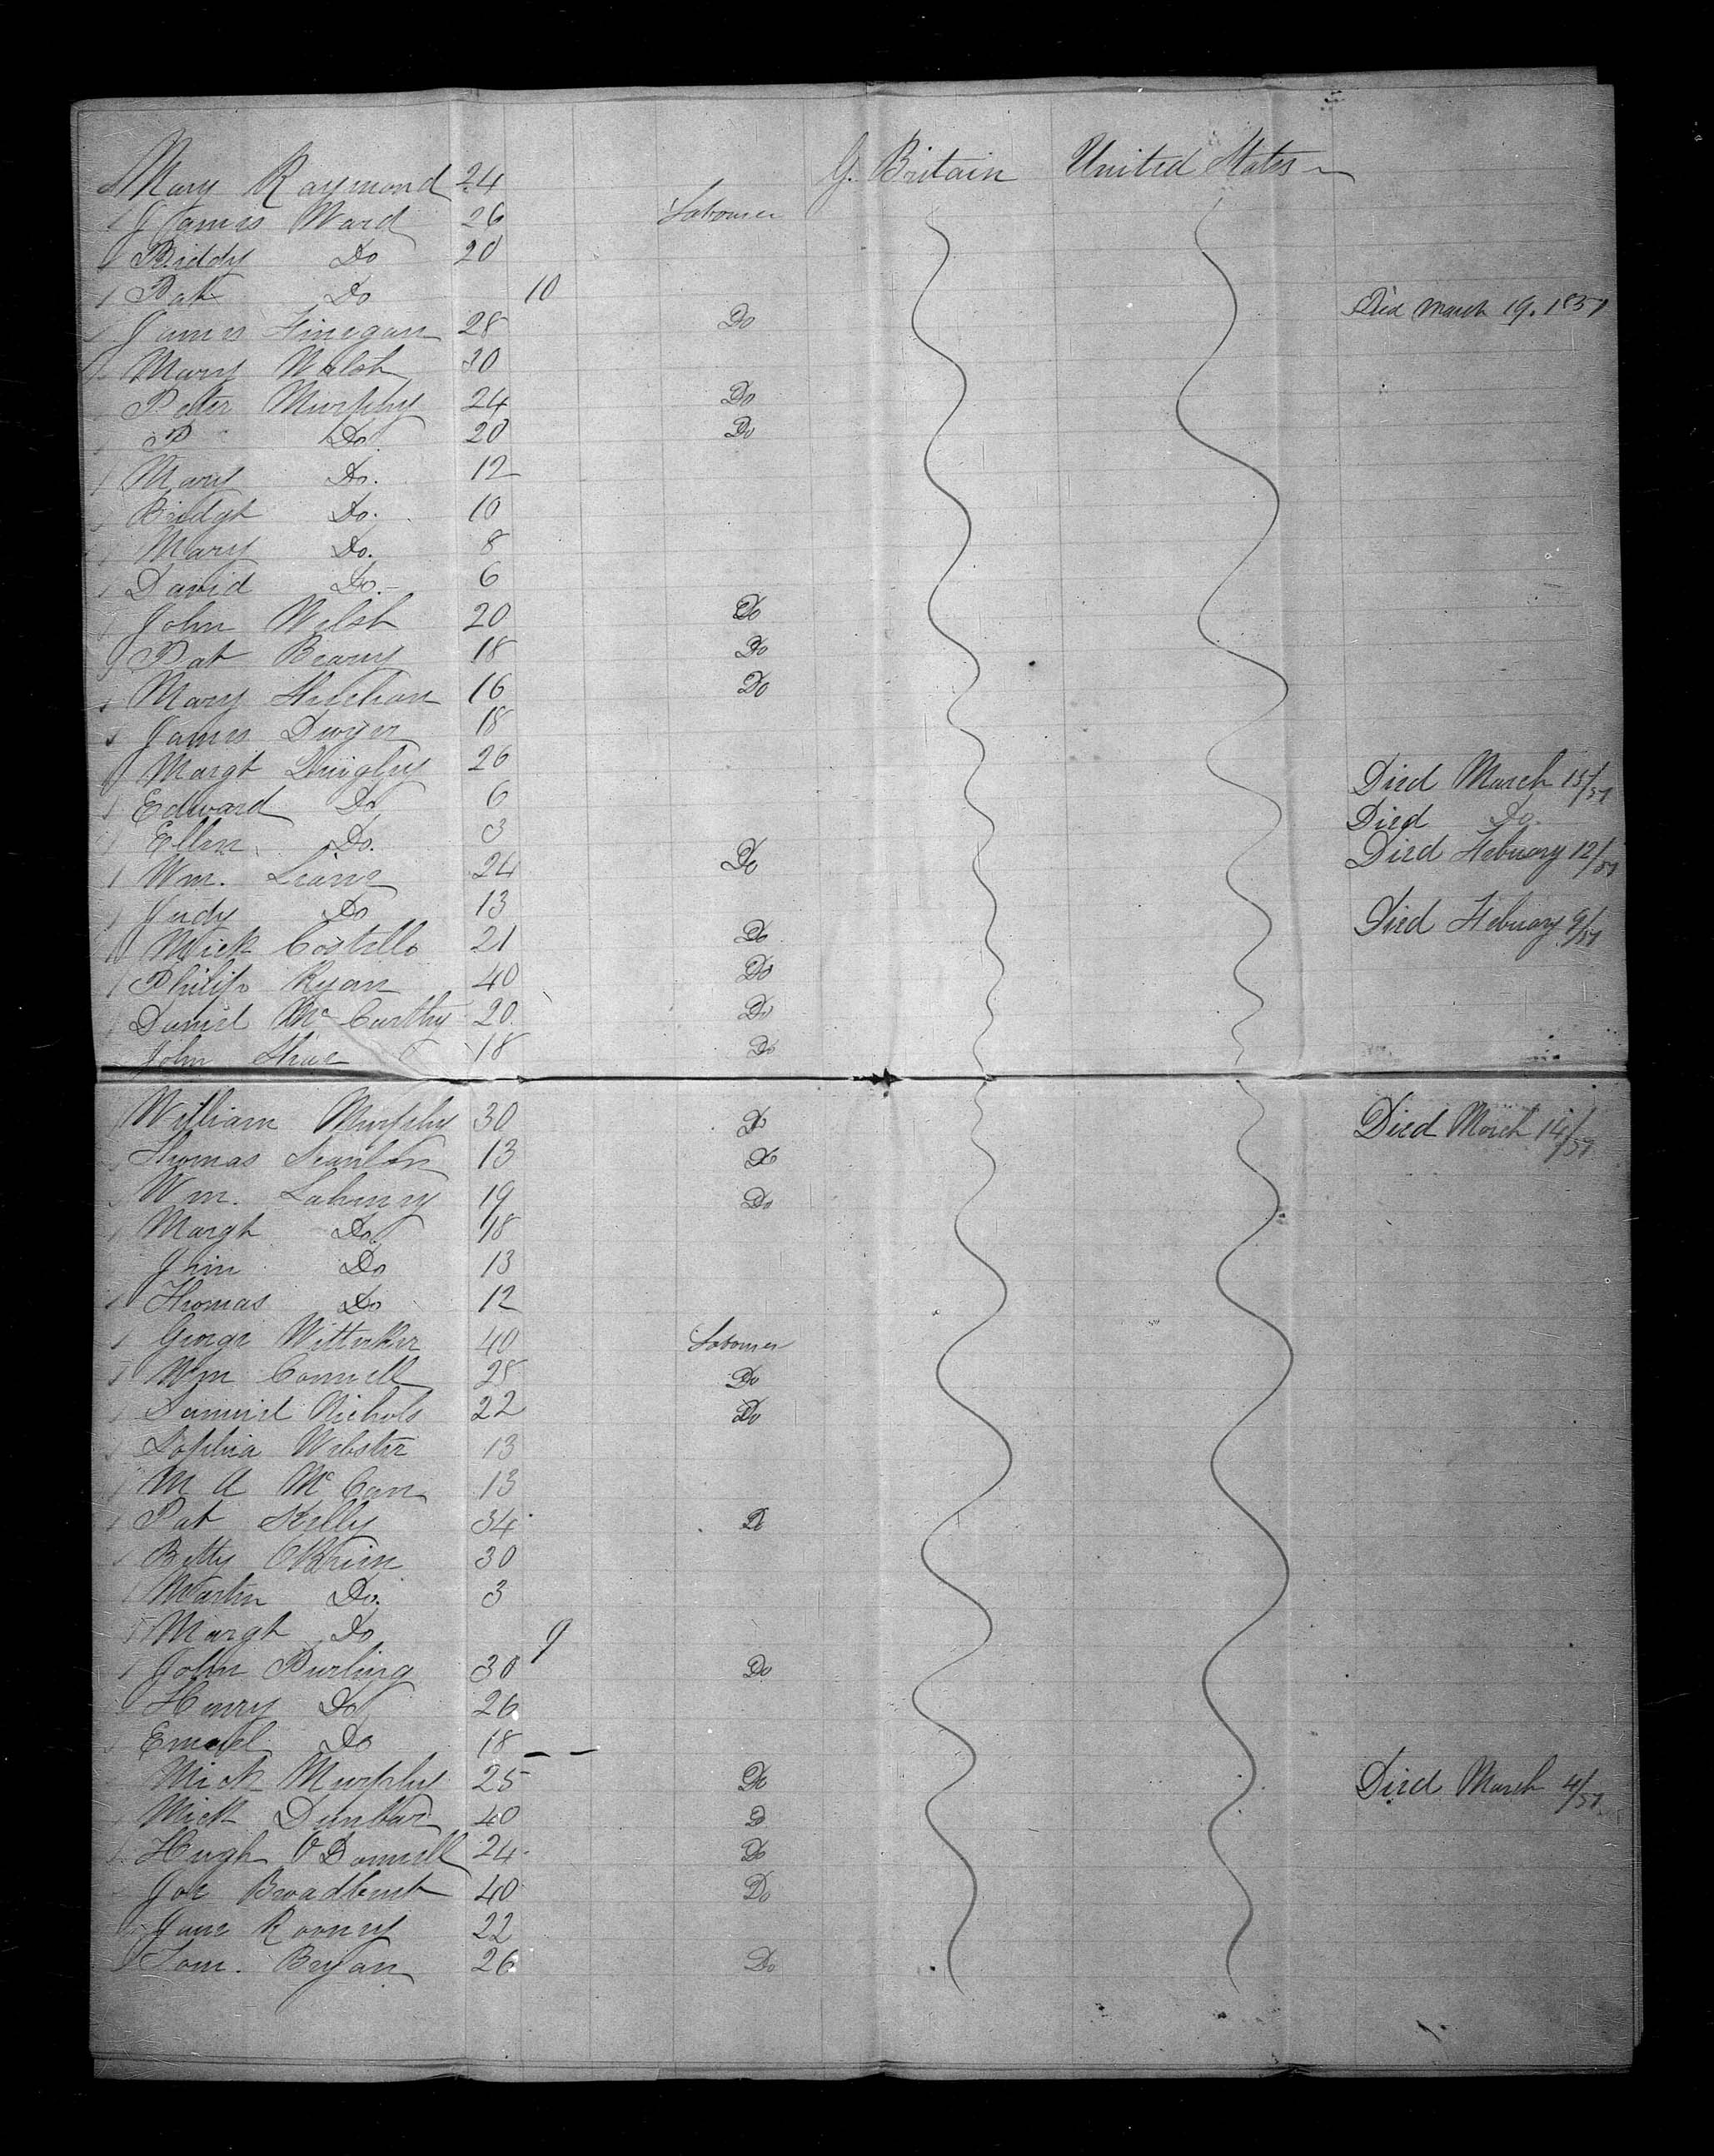 Mary Raymond 24 G. Britain United States
James Ward 26 Labourer
Biddy Do 20
Pat Do 10 Died March 19. 1851
James Finegan 28 Do
Mary Walsh 30
Peter Murphy 24 Do
P Do 20 Do
Mary Do. 12
Bridgt Do. 10
Mary Do. 8
David Do. 6
John Welsh 20 Do
Pat Beary 18 Do
Mary 16 Do
James Dwyer 18
Margt Quigley 26 Died March 15/51
Edward Do 6 Died Do.
Ellen Do. 3 Died Febuary 12/51
Wm. 24 Do
Judy Do 13 Died Febuary 9/51
Mick Costello 21 Do
Philip Ryan 40 Do
Daniel McCarthy 20. Do
John 18 Do
William Murphy 30 Do Died March 14/51
Thomas Scanlon 13 Do
Wm. Lahinny 19 Do
Margt Do. 18
Jim Do 13
Thomas Do 12
George Witterker 40 Labourer
Wm Connell 25 Do
Samuel Nichols 22 Do
Sophia Webster 13
M A McCan 13
Pat Kelly 34 Do
Betty OBrien 30
Martin Do. 3
Margt Do 9
John Burling 30 Do
Henry Do 26
Do 18
Mick Murphy 25 Do Died March 4/51
Mick Dunbar 40 Do
Hugh O Donnell 24 Do
Joe Broadbent 40 Do
Jane Rooney 22
Tom. Bryan 26 Do